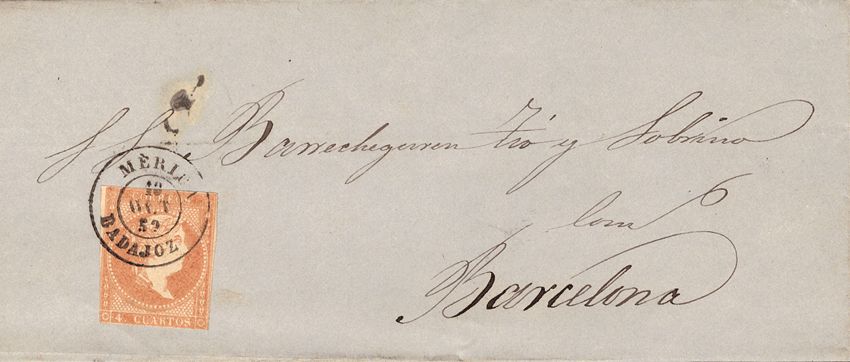 S. S. Barrecheguren Tío y Sobrino
Com
Barcelona
MÉRIDA
10
OCT
59
BADAJOZ
4. CUARTOS